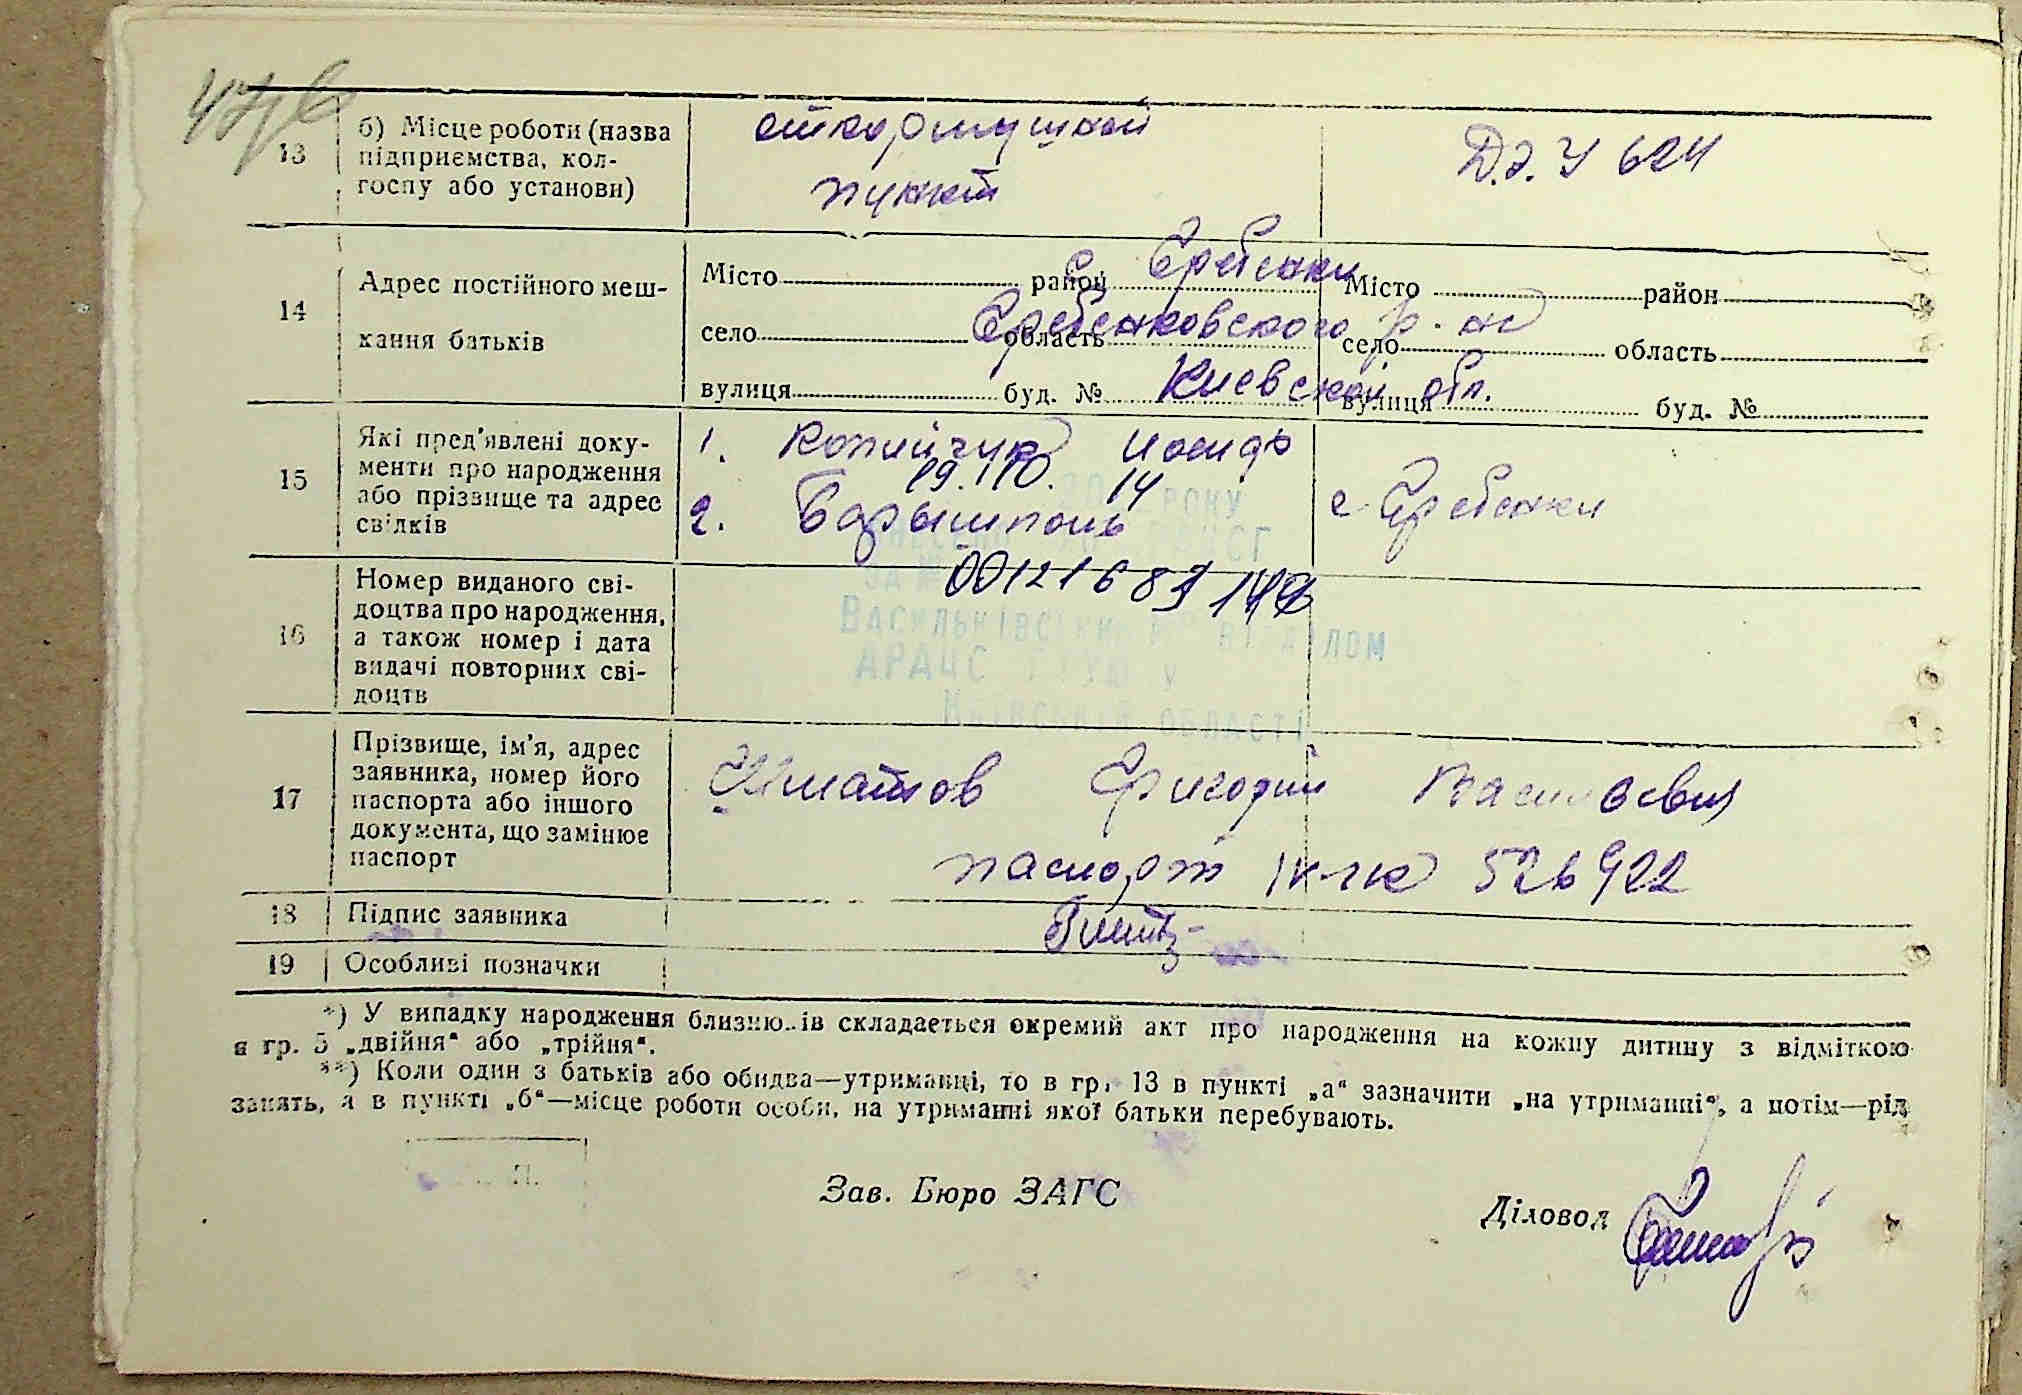 47 в
13
б) Місце роботи (назва
підприємства, кол-
госпу або установи)
пункт
Д.Э.У 624
14
Адрес постійного меш-
кання батьків
Місто район
село область
вулиця буд. №
Місто район
село область
вулиця буд. №
с Гребенки
Гребенковского р-на
Киевской обл.
15
Які пред'явлені доку-
менти про народження
або прізвище та адрес
свідків
1. Копийчук
19. 110. 14
2. Барышполь
с Гребенки
РОКУ
16
Номер виданого сві-
доцтва про народження,
а також номер і дата
видачі повторних сві-
доцтв
00121689148
за №
Васильківським відділом
АРАЦС
Київській області
17
Прізвище, ім'я, адрес
заявника, номер його
паспорта або іншого
документа, що замінює
паспорт
Игнатов Григорий Васильевич
паспорт 526922
18
Підпис заявника
19
Особливі позначки
*) У випадку народження близнюків складається окремий акт про народження на кожну дитину з відміткою
в гр. 5 „двійня" або „трійня".
**) Коли один з батьків або обидва—утриманці, то в гр. 13 в пункті „а" зазначити „на утриманні", а потім—рід
занять, а в пункті „б"—місце роботи особи, на утриманні якої батьки перебувають.
Зав. Бюро ЗАГС
Діловод